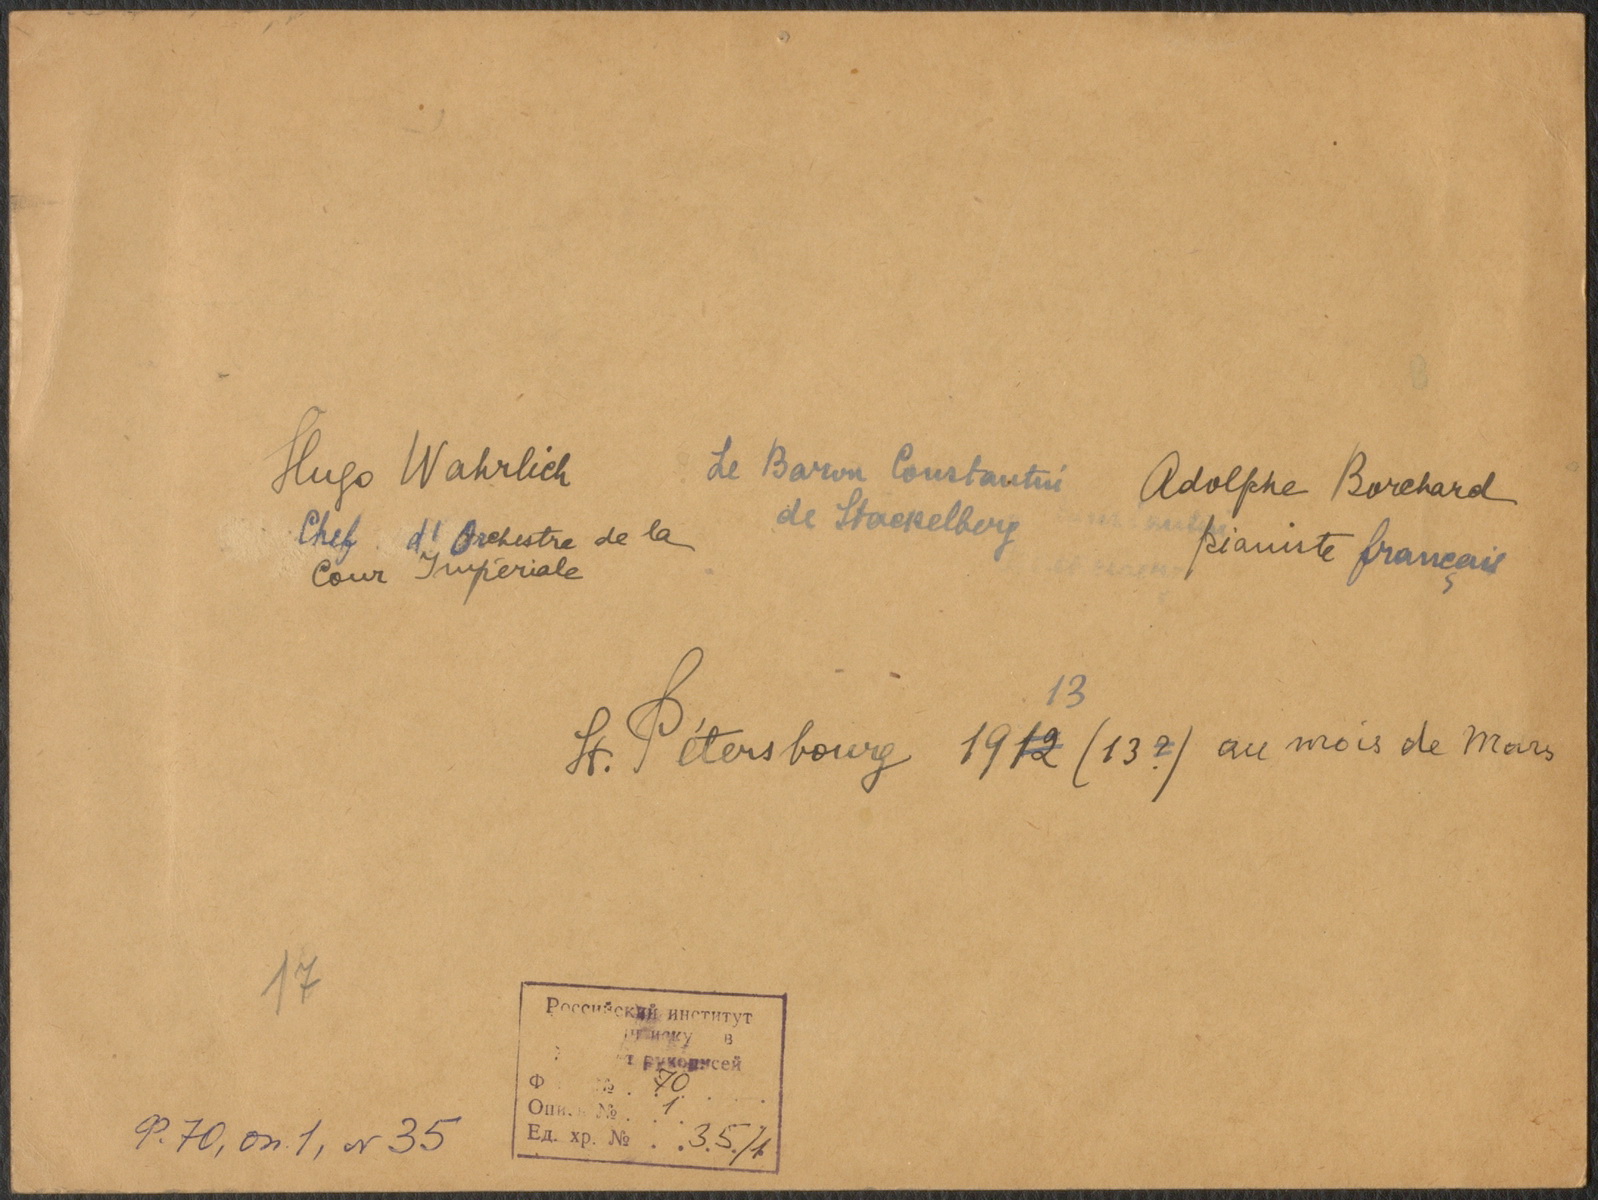 Hugo Wahrlich
Chef d'Orchestre de la
Cour Impériale
Le Baron Constantin
de Stackelberg
Adolphe Borchard
pianiste français
13
St. Pétersbourg 1912 (13?) au mois de Mars
17
Российский институт
в
рукописей
Ф № 70
Опи. № 1
Ед. хр. № 35/1
Ф. 70, оп. 1, № 35